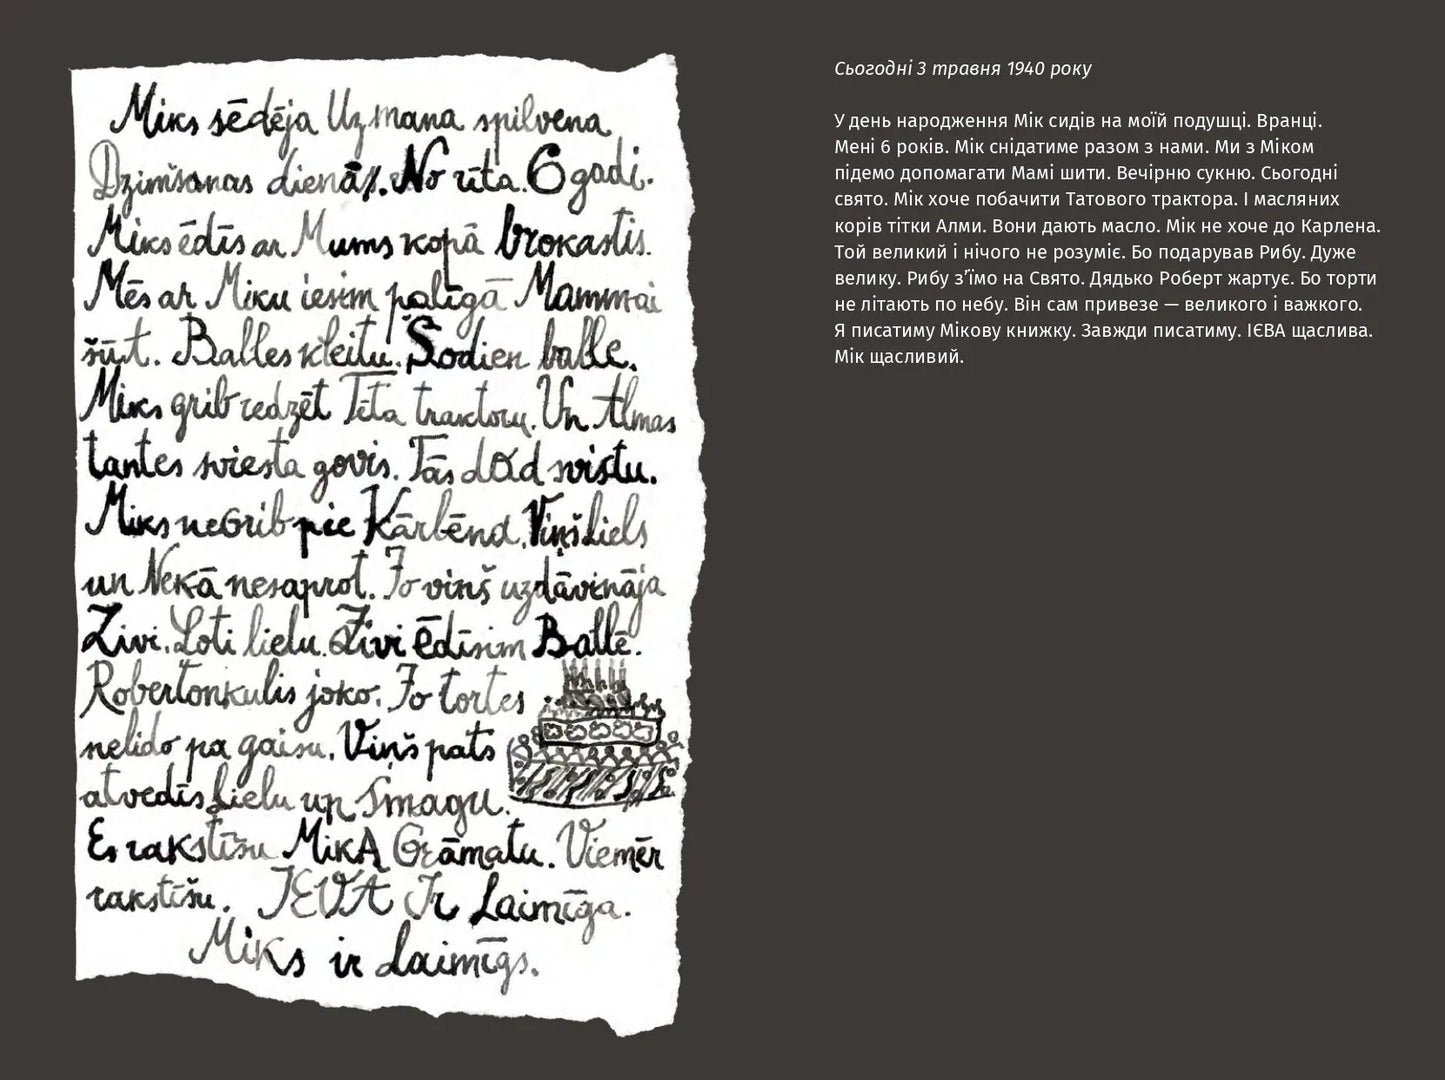 Miks sēdēja Uz mana spilvena
Dzimšanas dienā. No rīta. 6 gadi.
Miks ēdīs ar Mums kopā brokastis.
Mēs ar Miku iesim palīgā Mammai
šūt. Balles kleitu. Šodien balle.
Miks grib redzēt Tēta traktoru. Un Almas
tantes sviesta govis. Tās dod svistu.
Miks neGrib pie Kārlēna. Viņš liels
un Nekā nesaprot. Jo viņš uzdāvināja
Zivi. Loti lielu. Zivi ēdīsim Ballē.
Robertonkulis joko. Jo tortes
nelido pa gaisu. Viņš pats
atvedīs Lielu un Smagu.
Es rakstīšu MikA Grāmatu. Viemēr
rakstīšu. IEVA Ir Laimīga.
Miks ir Laimīgs.
Сьогодні 3 травня 1940 року
У день народження Мік сидів на моїй подушці. Вранці.
Мені 6 років. Мік снідатиме разом з нами. Ми з Міком
підемо допомагати Мамі шити. Вечірню сукню. Сьогодні
свято. Мік хоче побачити Татового трактора. І масляних
корів тітки Алми. Вони дають масло. Мік не хоче до Карлена.
Той великий і нічого не розуміє. Бо подарував Рибу. Дуже
велику. Рибу з’їмо на Свято. Дядько Роберт жартує. Бо торти
не літають по небу. Він сам привезе — великого і важкого.
Я писатиму Мікову книжку. Завжди писатиму. ІЄВА щаслива.
Мік щасливий.